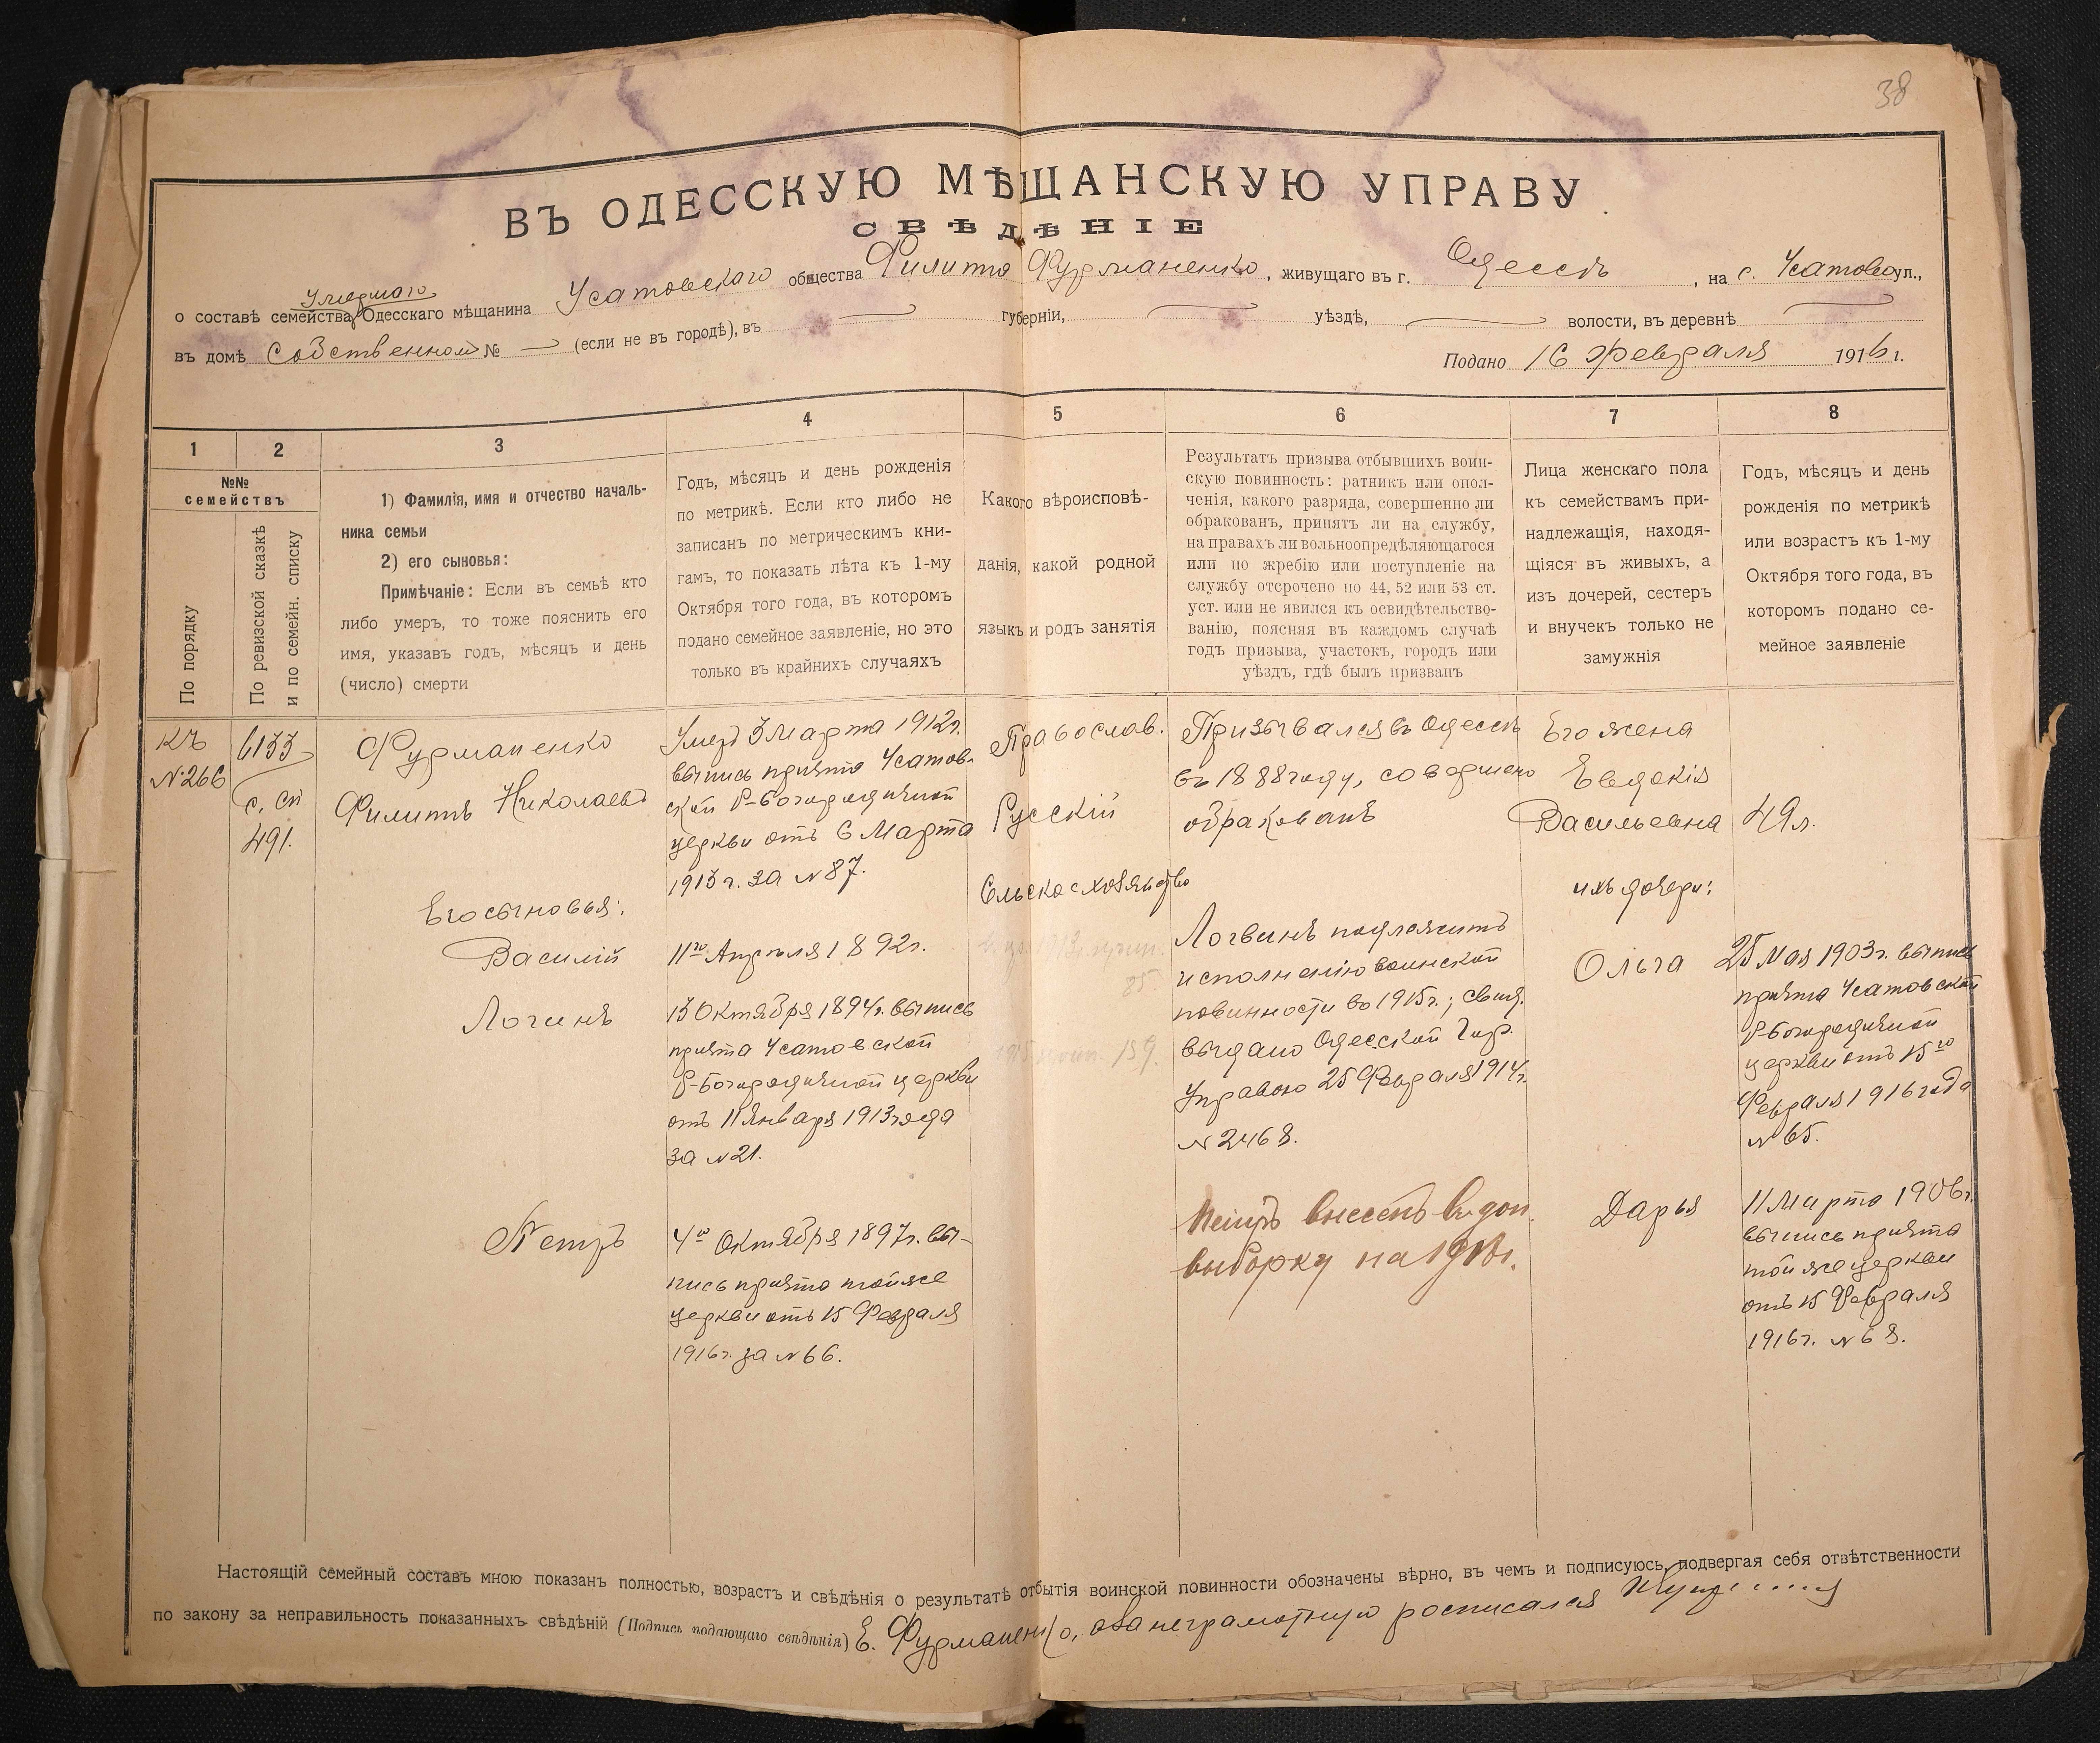 38
ВЪ ОДЕССКУЮ МѢЩАНСКУЮ УПРАВУ
СВѢДѢНІЕ
умершаго
о составѣ семейства Одесскаго мѣщанина Усатовскаго общества Филиппа Фурманенко, живущаго въ г. Одессѣ, на с. Усатово ул.,
въ домѣ собственном № — (если не въ городѣ), въ — губерніи, — уѣздѣ, — волости, въ деревнѣ —
Подано 16 Февраля 1916 г.
1
2
3
4
5
6
7
8
№№
семействъ
По порядку
По ревизской сказкѣ
и по семейн. списку
1) Фамилія, имя и отчество началь-
ника семьи
2) его сыновья:
Примѣчаніе: Если въ семьѣ кто
либо умеръ, то тоже пояснить его
имя, указавъ годъ, мѣсяцъ и день
(число) смерти
Годъ, мѣсяцъ и день рожденія
по метрикѣ. Если кто либо не
записанъ по метрическимъ кни-
гамъ, то показать лѣта къ 1-му
Октября того года, въ которомъ
подано семейное заявленіе, но это
только въ крайнихъ случаяхъ
Какого вѣроисповѣ-
данія, какой родной
языкъ и родъ занятія
Результатъ призыва отбывшихъ воин-
скую повинность: ратникъ или опол-
ченія, какого разряда, совершенно ли
обракованъ, принятъ ли на службу,
на правахъ ли вольноопредѣляющагося
или по жребію или поступленіе на
службу отсрочено по 44, 52 или 53 ст.
уст. или не явился къ освидѣтельство-
ванію, поясняя въ каждомъ случаѣ
годъ призыва, участокъ, городъ или
уѣздъ, гдѣ былъ призванъ
Лица женскаго пола
къ семействамъ при-
надлежащія, находя-
щіяся въ живыхъ, а
изъ дочерей, сестеръ
и внучекъ только не
замужнія
Годъ, мѣсяцъ и день
рожденія по метрикѣ
или возрастъ къ 1-му
Октября того года, въ
которомъ подано се-
мейное заявленіе
Къ
№ 266
6133
с. сп
491.
Фурманенко
Филиппъ Николаевъ
Умеръ 3 Марта 1912г.
выпись причта Усатов-
ской Р-Богородичной
церкви отъ 6 Марта
1913 г. за №87.
Православ.
Русскій
Сельское хозяйство
Призывался въ Одессѣ
въ 1888 году, совершено
обракованъ
Его жена
Евдокія
Васильевна
49 л.
Его сыновья:
Василій
11го Апрѣля 1892г.
Логинъ
13 Октября 1894г. выпись
причта Усатовской
Р-Богородичной церкви
отъ 11 Января 1913 года
за №21.
Логвинъ подлежитъ
исполненію воинской
повинности въ 1915г.; свид.
выдано Одесской Гор.
Управою 25 Февраля 1914г.
№2468.
ихъ дочери:
Ольга
25 Мая 1903г. выпись
причта Усатовской
Р-Богородичной
церкви отъ 15го
Февраля 1916 года
№65.
Петръ
4го Октября 1897г. вы-
пись причта той же
церкви отъ 15 Февраля
1916г. за №66.
Петръ внесенъ въ доп.
выборку на 1918г.
Дарья
11 Марта 1906г.
выпись причта
той же церкви
отъ 15 Февраля
1916г. №68.
Настоящій семейный составъ мною показанъ полностью, возрастъ и свѣдѣнія о результатѣ отбытія воинской повинности обозначены вѣрно, въ чемъ и подписуюсь, подвергая себя отвѣтственности
по закону за неправильность показанныхъ свѣдѣній (Подпись подающаго свѣдѣнія) Е. Фурманенко, а за неграмотную росписался